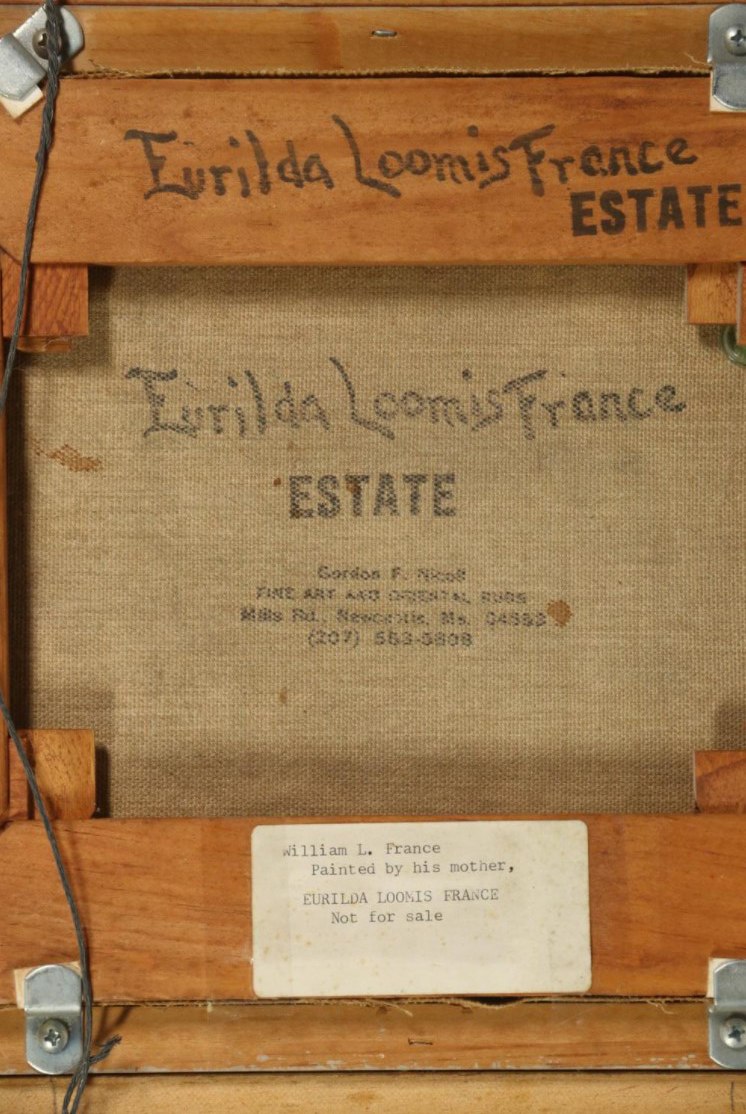 Eurilda Loomis France
ESTATE
Eurilda Loomis France
ESTATE
Gordon F. Nicoll
FINE ART AND ORIENTAL RUGS
Mills Rd., Newcastle, Me. 04553
(207) 563-5808
William L. France
Painted by his mother,
EURILDA LOOMIS FRANCE
Not for sale